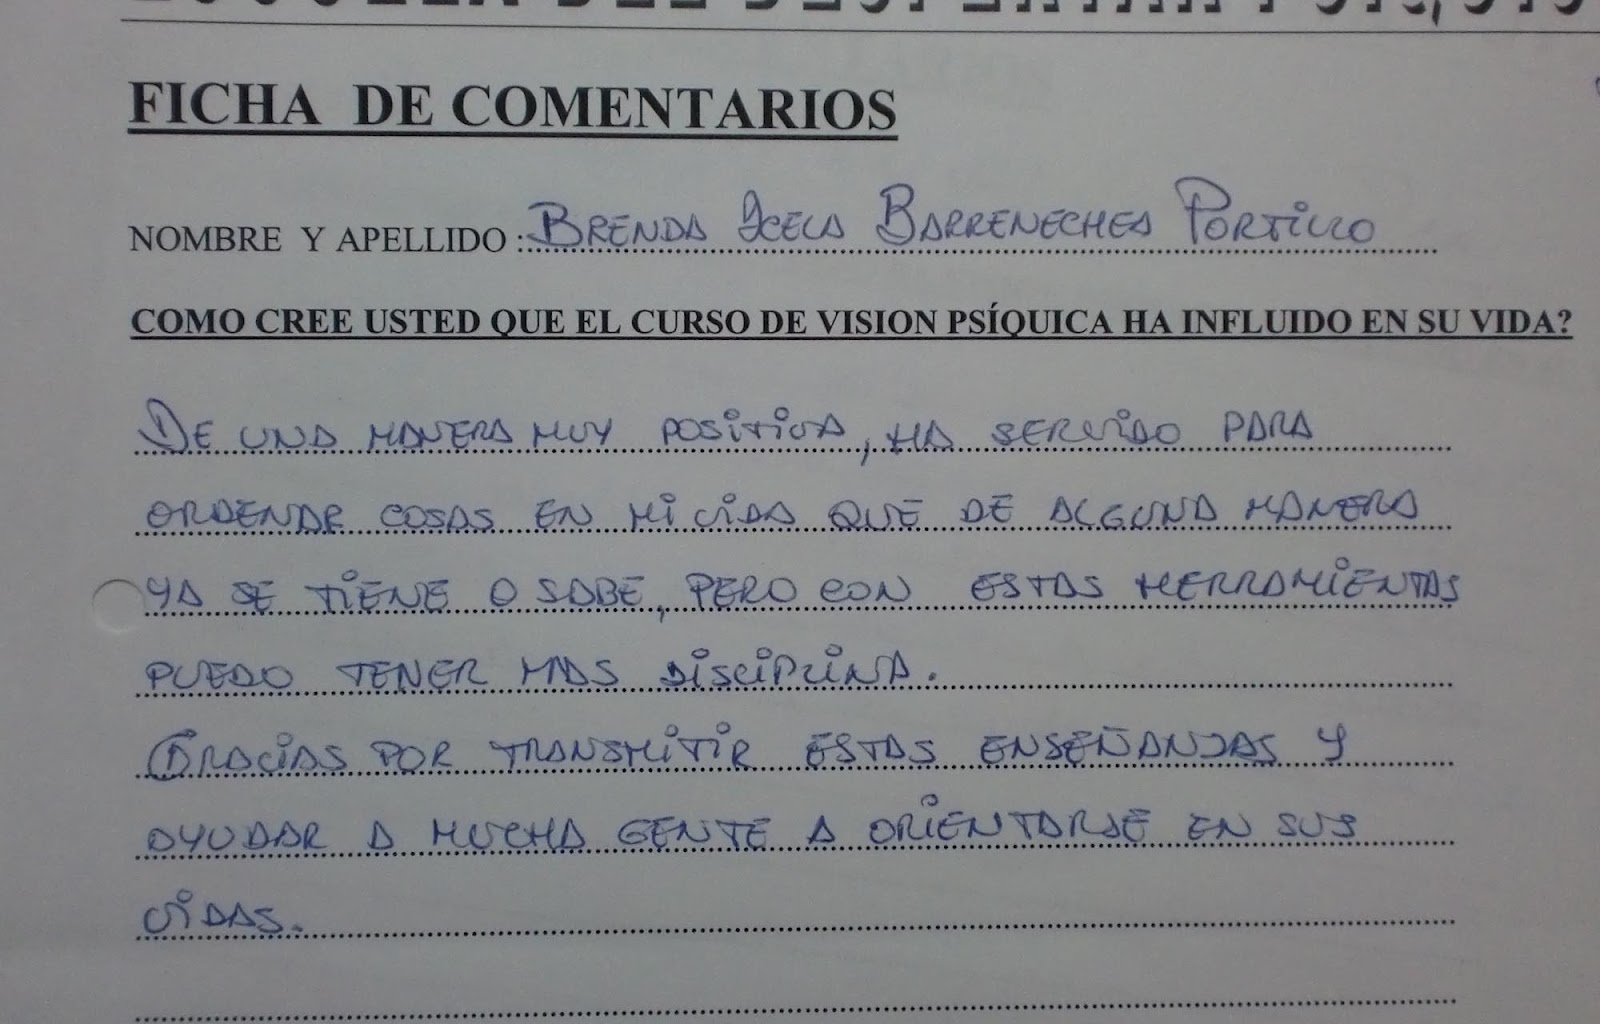 FICHA DE COMENTARIOS
NOMBRE Y APELLIDO : BRENDA ICELA BARRENECHEA PORTILLO
COMO CREE USTED QUE EL CURSO DE VISION PSÍQUICA HA INFLUIDO EN SU VIDA?
DE UNA MANERA MUY POSITIVA, HA SERVIDO PARA
ORDENAR COSAS EN MI VIDA QUE DE ALGUNA MANERA
YA SE TIENE O SABE, PERO CON ESTAS HERRAMIENTAS
PUEDO TENER MAS DISCIPLINA.
GRACIAS POR TRANSMITIR ESTAS ENSEÑANZAS Y
AYUDAR A MUCHA GENTE A ORIENTARSE EN SUS
VIDAS.